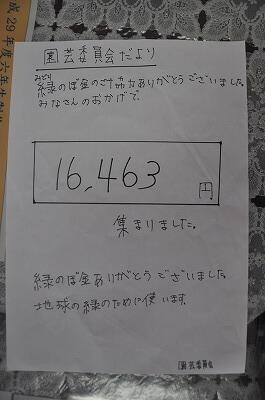 成29年度六年生制作
園芸委員会だより
みどり
緑のぼ金のご協力ありがとうございました。
みなさんのおかげで、
16,463円
集まりました。
緑のぼ金ありがとうございました。
地球の緑のために使います。
園芸委員会